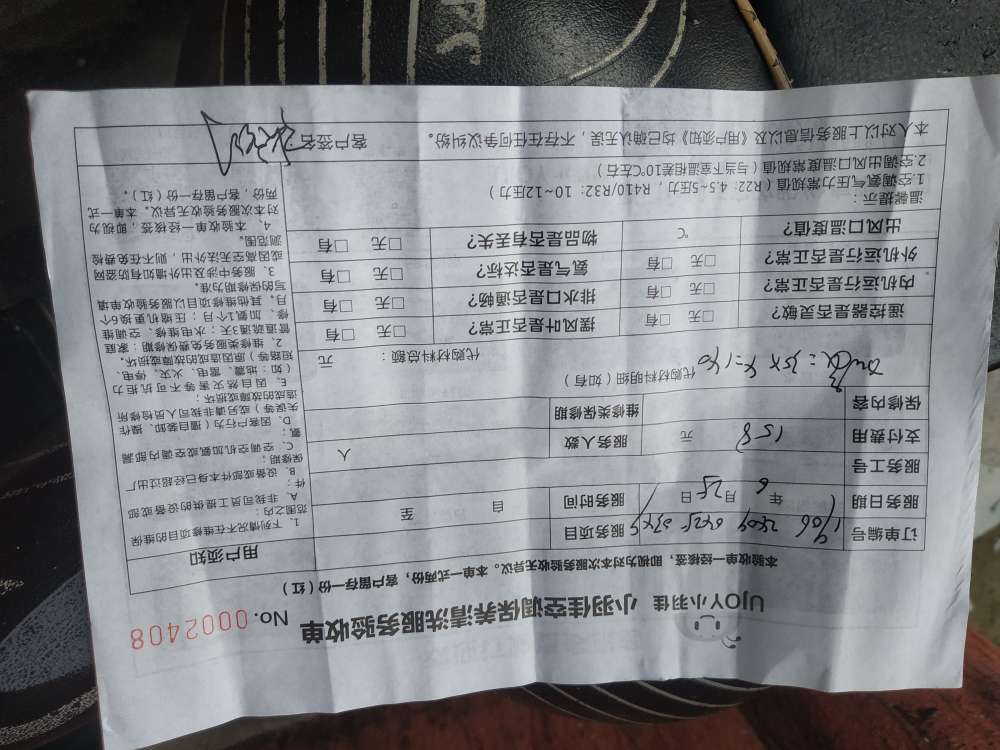 UJOY小羽佳 小羽佳空调保养清洗服务验收单 No. 0002408
本验收单一经核签，即视为对本次服务验收无异议。本单一式两份，客户留存一份（红）
订单编号 服务项目
服务日期 年 6 月 25 日 服务时间 自 至
服务工号
支付费用 158 元 服务人数 人
保修内容 维修类保修期
代购材料明细（如有）
= 35x4=140
代购材料总额： 元
遥控器是否灵敏？ □无 □有 摆风叶是否正常？ □无 □有
内机运行是否正常？ □无 □有 排水口是否通畅？ □无 □有
外机运行是否正常？ □无 □有 氨气是否达标？ □无 □有
出风口温度值？ ℃ 物品是否有丢失？ □无 □有
温馨提示：
1.空调氨气压力常规值（R22：4.5~5压力，R410/R32：10~12压力）
2.空调出风口温度常规值（与当下室温相差10℃左右）
本人对以上服务信息以及《用户须知》均已确认无误，不存在任何争议纠纷。 客户签名：
用户须知：
1、下列情况不在维修项目的维保
范围之内：
A、非我司员工提供的设备或部
件；
B、设备或部件本身已经超过出厂
保修期；
C、空调空机加氨或空调内部漏
氨；
D、因客户行为（擅自装卸、操作
失误等）或另请非我司人员检修所
造成的故障或损坏；
E、因自然灾害等不可抗拒力
（如：地震、雷电、火灾、停电、
短路等）原因造成的故障或损坏。
2、维修类服务免费保修期：家庭
管道疏通3天；水电维修、空调维
修、加氨1个月；压缩机更换6个
月，其他维修项目以服务验收单填
写的保修期为准。
3、服务中涉及出外墙如遇有防盗网
或因高空无法外出，则不在免费检
测范围。
4、本验收单一经核签，即视为
对本次服务验收无异议。本单一式
两份，客户留存一份（红）。